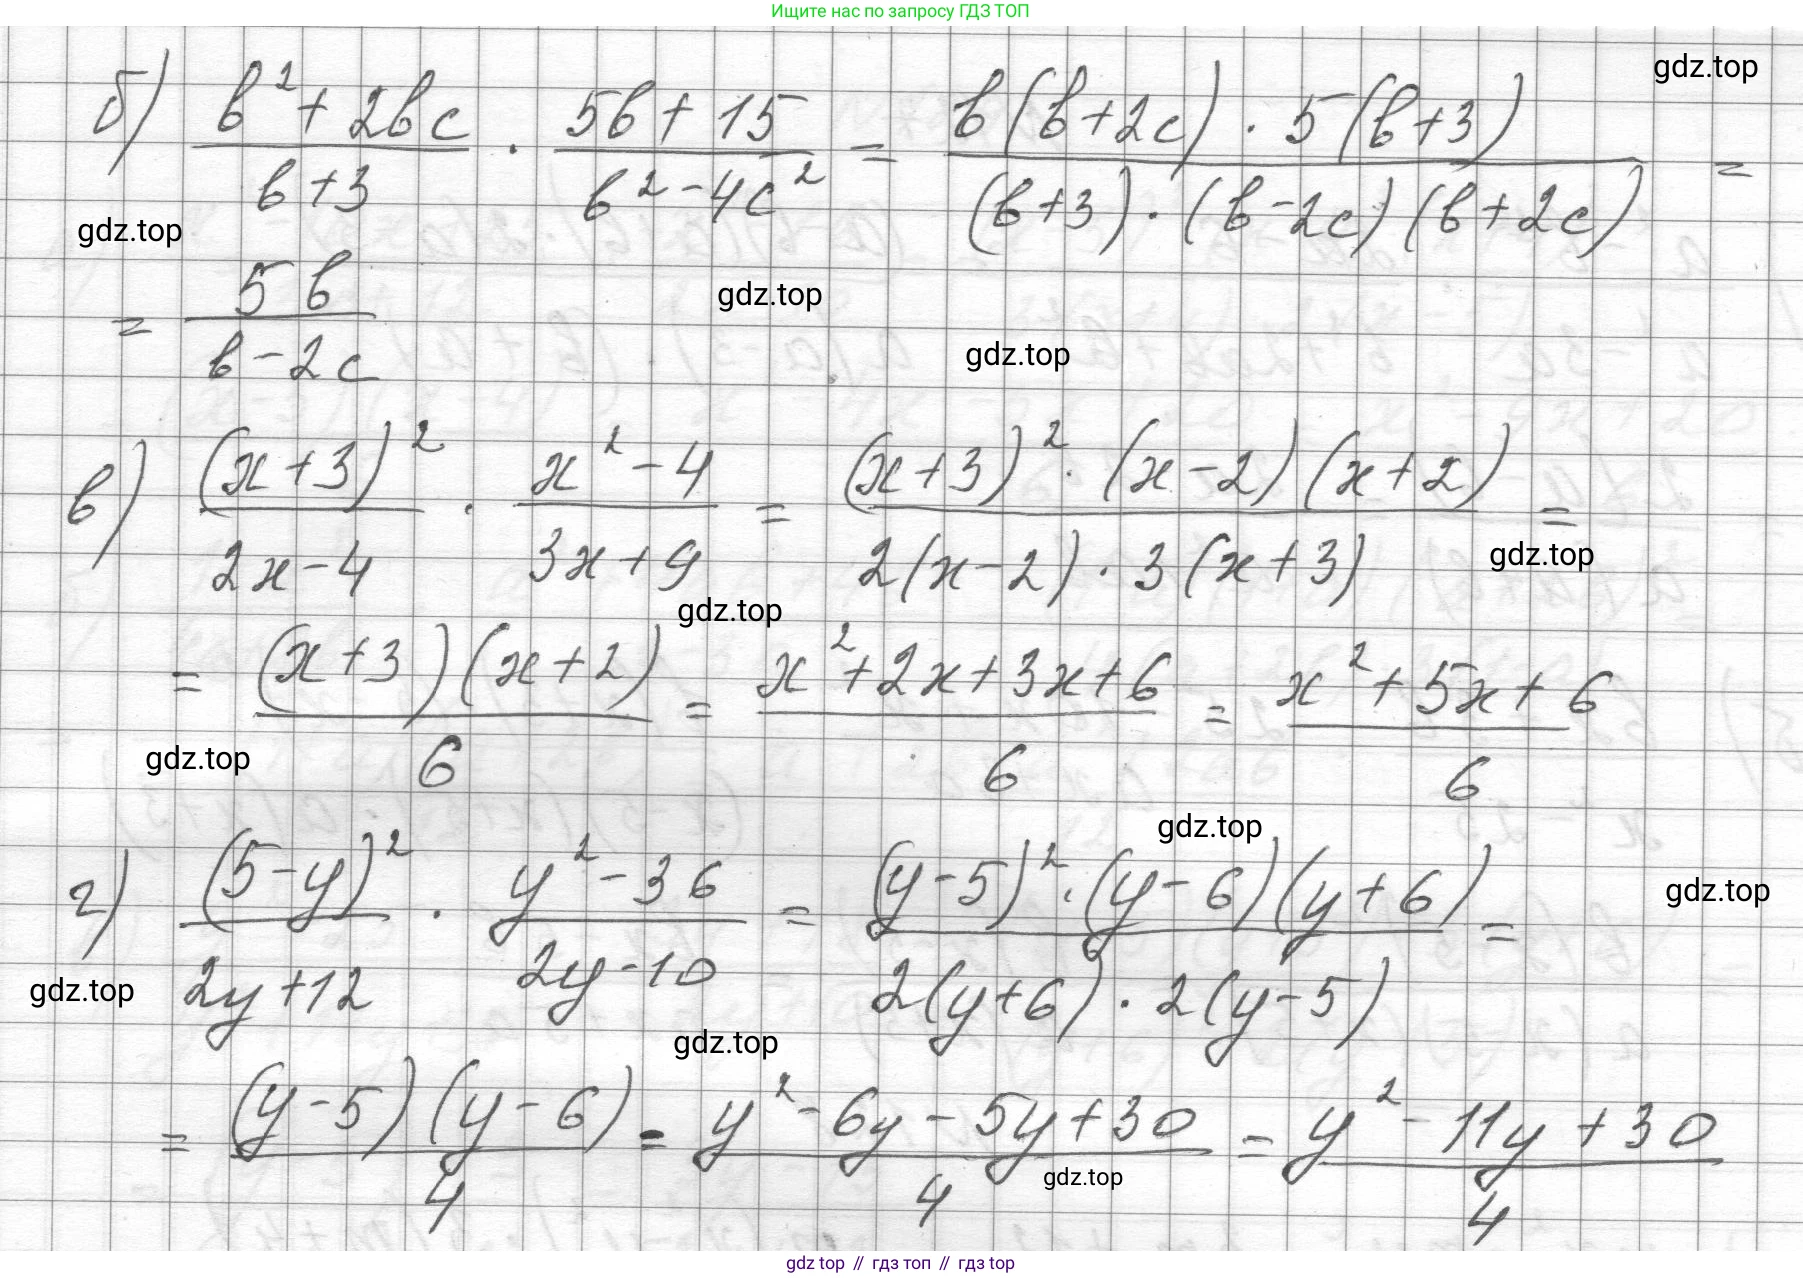 Ищите нас по запросу ГДЗ ТОП
gdz.top
б) (b² + 2bc)/(b+3) · (5b + 15)/(b² - 4c²) = (b(b+2c) · 5(b+3))/((b+3) · (b-2c)(b+2c)) =
gdz.top
= (5b)/(b - 2c)
gdz.top
gdz.top
в) (x+3)²/(2x-4) · (x² - 4)/(3x+9) = ((x+3)² · (x-2)(x+2))/(2(x-2) · 3(x+3)) =
gdz.top
gdz.top
= ((x+3)(x+2))/6 = (x² + 2x + 3x + 6)/6 = (x² + 5x + 6)/6
gdz.top
gdz.top
г) (5-y)²/(2y+12) · (y² - 36)/(2y-10) = ((y-5)² · (y-6)(y+6))/(2(y+6) · 2(y-5)) =
gdz.top
gdz.top
gdz.top
= ((y-5)(y-6))/4 = (y² - 6y - 5y + 30)/4 = (y² - 11y + 30)/4
gdz.top
gdz top // гдз топ // гдз top